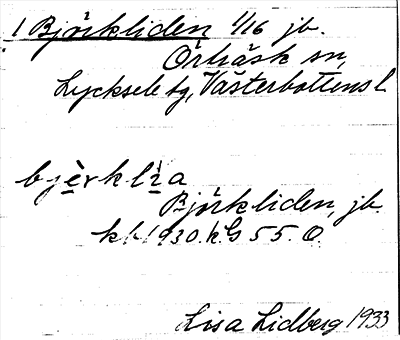 1 Björkliden 1/16 jb.
Örträsk sn,
Lycksele tg, Västerbottens l
bjèrklìa
Björkliden, jb.
kb 1930. h. G 55. Ö.
Lisa Lidberg 1933